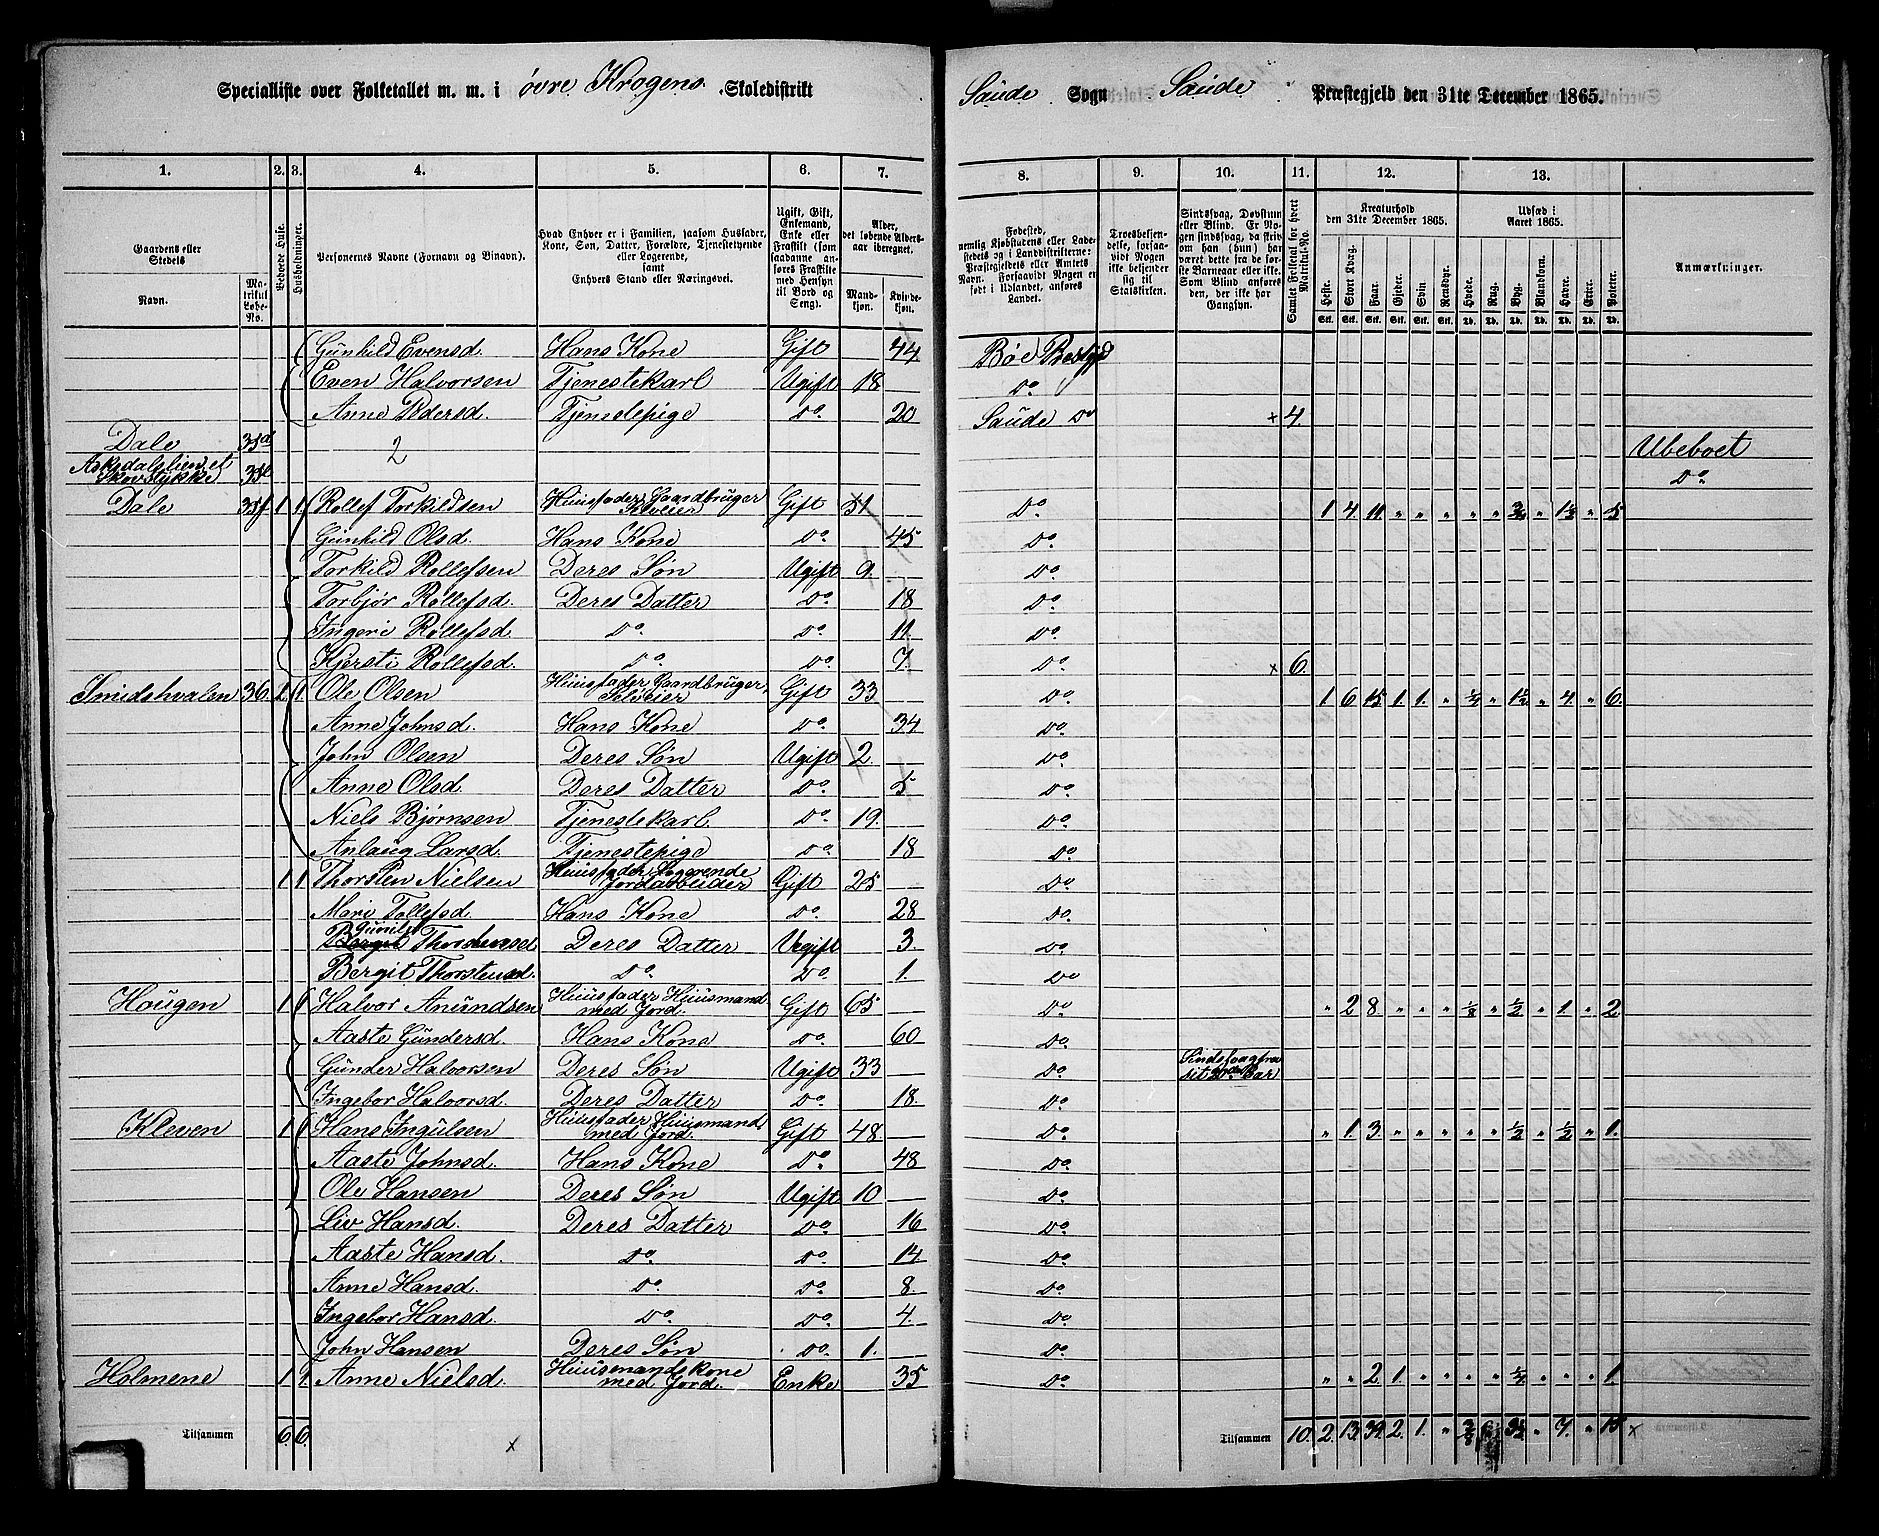 Specialliste over Folketallet m. m. i øvre Krogens Skoledistrikt Saude Sogn Saude Præstegjeld den 31te December 1865.
1. 2. 3. 4. 5. 6. 7. 8. 9. 10. 11. 12. 13.
Gaardens eller Stedets
Navn. Matrikul Løbe-No.
Beboede Huse.
Husholdninger.
Personernes Navne (Fornavn og Binavn).
Hvad Enhver er i Familien, saasom Husfader, Kone, Søn, Datter, Forældre, Tjenestetyende eller Logerende, samt Enhvers Stand eller Næringsvei.
Ugift, Gift, Enkemand, Enke eller Fraskilt (som saadanne anføres Fraskilte med Hensyn til Bord og Seng).
Alder, det løbende Aldersaar iberegnet.
Mandkjøn. Kvindekjøn.
Fødested, nemlig Kjøbstadens eller Ladestedets og i Landdistrikterne: Præstegjeldets eller Amtets Navn. Forsaavidt Nogen er født i Udlandet, anføres Landet.
Troesbekjendelse, forsaavidt Nogen ikke bekjender sig til Statskirken.
Sindssvag, Døvstum eller Blind. Er Nogen sindssvag, da skrives om han (hun) har været dette fra de første Barneaar eller ikke. Som Blind anføres den, der ikke har Gangsyn.
Samlet Folketal for hvert Matrikul-No.
Kreaturhold den 31te December 1865.
Heste. Stort Kvæg. Faar. Gjeder. Svin. Rensdyr.
Udsæd i Aaret 1865.
Hvede. Rug. Byg. Blandkorn. Havre. Erter. Poteter.
Anmærkninger.
Stk. Stk. Stk. Stk. Stk. Stk. Td. Td. Td. Td. Td. Td. Td.
Gunhild Evensd. Hans Kone Gift 44 Bøe Prestgjd
Even Halvorsen Tjenestekarl Ugift 18 Do.
Anne Pedersd. Tjenstepige Do. 20 Saude Do + 4.
Dale 35d 2 Ubeboet
Aksdalslien et Skovstykke 35e Do.
Dale 35f 1 1 Rollef Torkildsen Huusfader Gaardbruger Selveier Gift 51 Do. 1 4 11 " " " " " " 5
Gunhild Olsd. Hans Kone Do. 45 Do.
Torkild Rollefsen Deres Søn Ugift 9. Do.
Torbjør Rollefsd. Deres Datter Do. 18 Do.
Ingeri Rollefsd. Do. Do. 11. Do.
Kjersti Rollefsd. Do. Do. 7. Do. x 6.
Smidshvalen 36 2 1 Ole Olsen Huusfader Gaardbruger, Selveier Gift 33 Do. 1 6 15 1. 1. " 1/4 " 1 1/2 " 4. " 6.
Anne Johnsd. Hans Kone Do. 34 Do.
John Olsen Deres Søn Ugift 2. Do.
Anne Olsd. Deres Datter Do. 5 Do.
Niels Bjørnsen Tjenestekarl Do. 19. Do.
Anlaug Larsd. Tjenestepige Do. 18 Do.
1 1 Thorsten Nielsen Huusfader, Logerende Jordarbeider Gift 25 Do.
Mari Tollefsd. Hans Kone Do. 28 Do.
Gunild Thorstensd Deres Datter Ugift 3. Do.
Bergit Thorstensd. Do. Do. 1. Do
Hougen 1 1 Halvor Anundsen Huusfader Huusmand med Jord. Gift 65 Do. " 2 8 " " " 1/8 " 1/2 " 1 " 2
Aaste Gundersd. Hans Kone Do. 60 Do.
Gunder Halvorsen Deres Søn Ugift 33 Do. Sindssvag fra sit Aar
Ingebor Halvorsd. Deres Datter Do. 18. Do.
Kleven 1 1 Hans Ingulsen Huusfader Huusmand med Jord. Gift 48. Do. " 1. 3. " " " " " 1/2 " 1/2 " 1.
Aaste Johnsd. Hans Kone Do. 48 Do.
Ole Hansen Deres Søn Ugift 10 Do.
Liv Hansd. Deres Datter Do. 16 Do.
Aaste Hansd. Do. Do. 14 Do.
Anne Hansd. Do. Do. 8. Do.
Ingebor Hansd. Do. Do. 4. Do.
John Hansen Deres Søn Do. 1. Do.
Holmene 1 1 Anne Nielsd. Huusmandskone med Jord. Enke 35 Do. " " 2 1. " " " " 1/4 " " " 1.
Tilsammen 6. 6. x Tilsammen 10. 2. 13. 39. 2. 1. " " 7. " 15 x